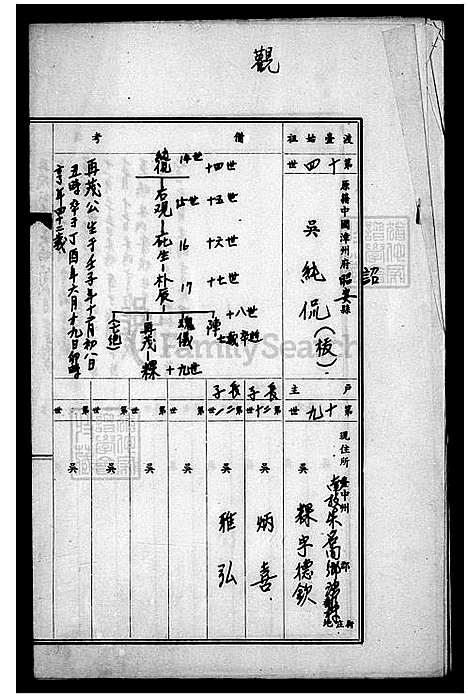 觀
渡臺始祖
第十四世
原籍中國漳州府昭安縣
詔
吳純侃(板)
備考
十四世
十五世
十六世
十七世
十八世
十九世
14世
15世
16
17
純侃
石观
花生
朴辰
陣
魂儀
再茂
粿
(七絕)
再茂公生于壬子年十一月初八日
丑時卒于丁酉年六月十九日卯時
享年四十二歲
戶主
第十九世
現住所臺中州
南投
吳粿字德欽
長子
第二十世
吳炳喜
長子
第二一世
吳雅弘
第 世
吳
第 世
吳
第 世
吳
第 世
吳
FamilySearch